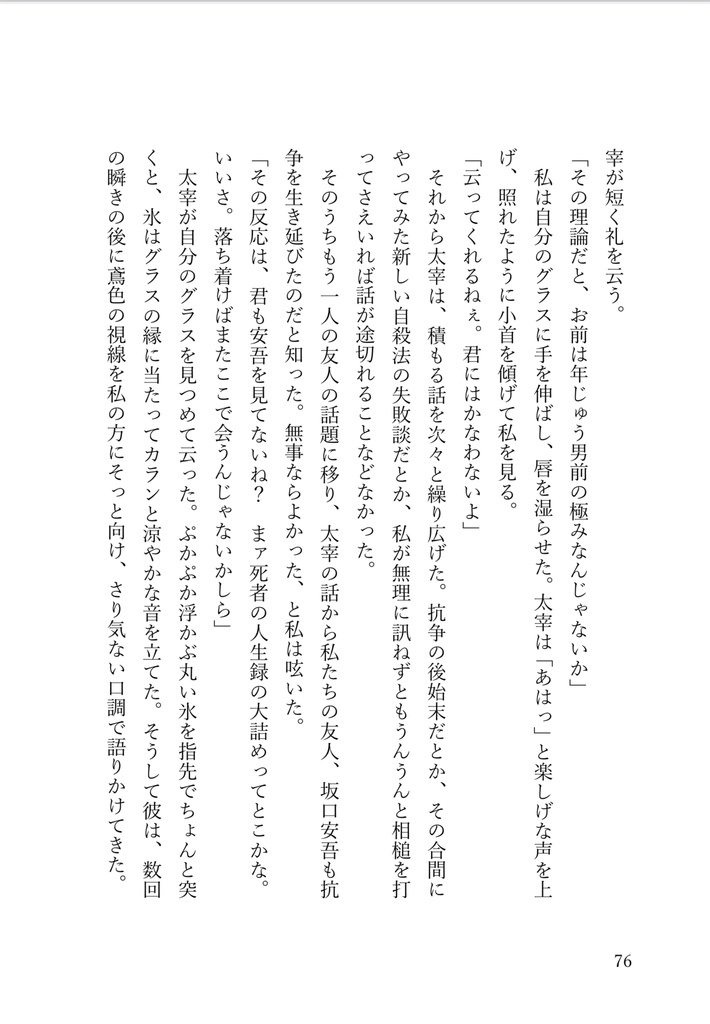 宰が短く礼を云う。
「その理論だと、お前は年じゅう男前の極みなんじゃないか」
　私は自分のグラスに手を伸ばし、唇を湿らせた。太宰は「あはっ」と楽しげな声を上
げ、照れたように小首を傾げて私を見る。
「云ってくれるねぇ。君にはかなわないよ」
　それから太宰は、積もる話を次々と繰り広げた。抗争の後始末だとか、その合間に
やってみた新しい自殺法の失敗談だとか、私が無理に訊ねずともうんうんと相槌を打
ってさえいれば話が途切れることなどなかった。
　そのうちもう一人の友人の話題に移り、太宰の話から私たちの友人、坂口安吾も抗
争を生き延びたのだと知った。無事ならよかった、と私は呟いた。
「その反応は、君も安吾を見てないね？　まァ死者の人生録の大詰めってとこかな。
いいさ。落ち着けばまたここで会うんじゃないかしら」
　太宰が自分のグラスを見つめて云った。ぷかぷか浮かぶ丸い氷を指先でちょんと突
くと、氷はグラスの縁に当たってカランと涼やかな音を立てた。そうして彼は、数回
の瞬きの後に鳶色の視線を私の方にそっと向け、さり気ない口調で語りかけてきた。
76